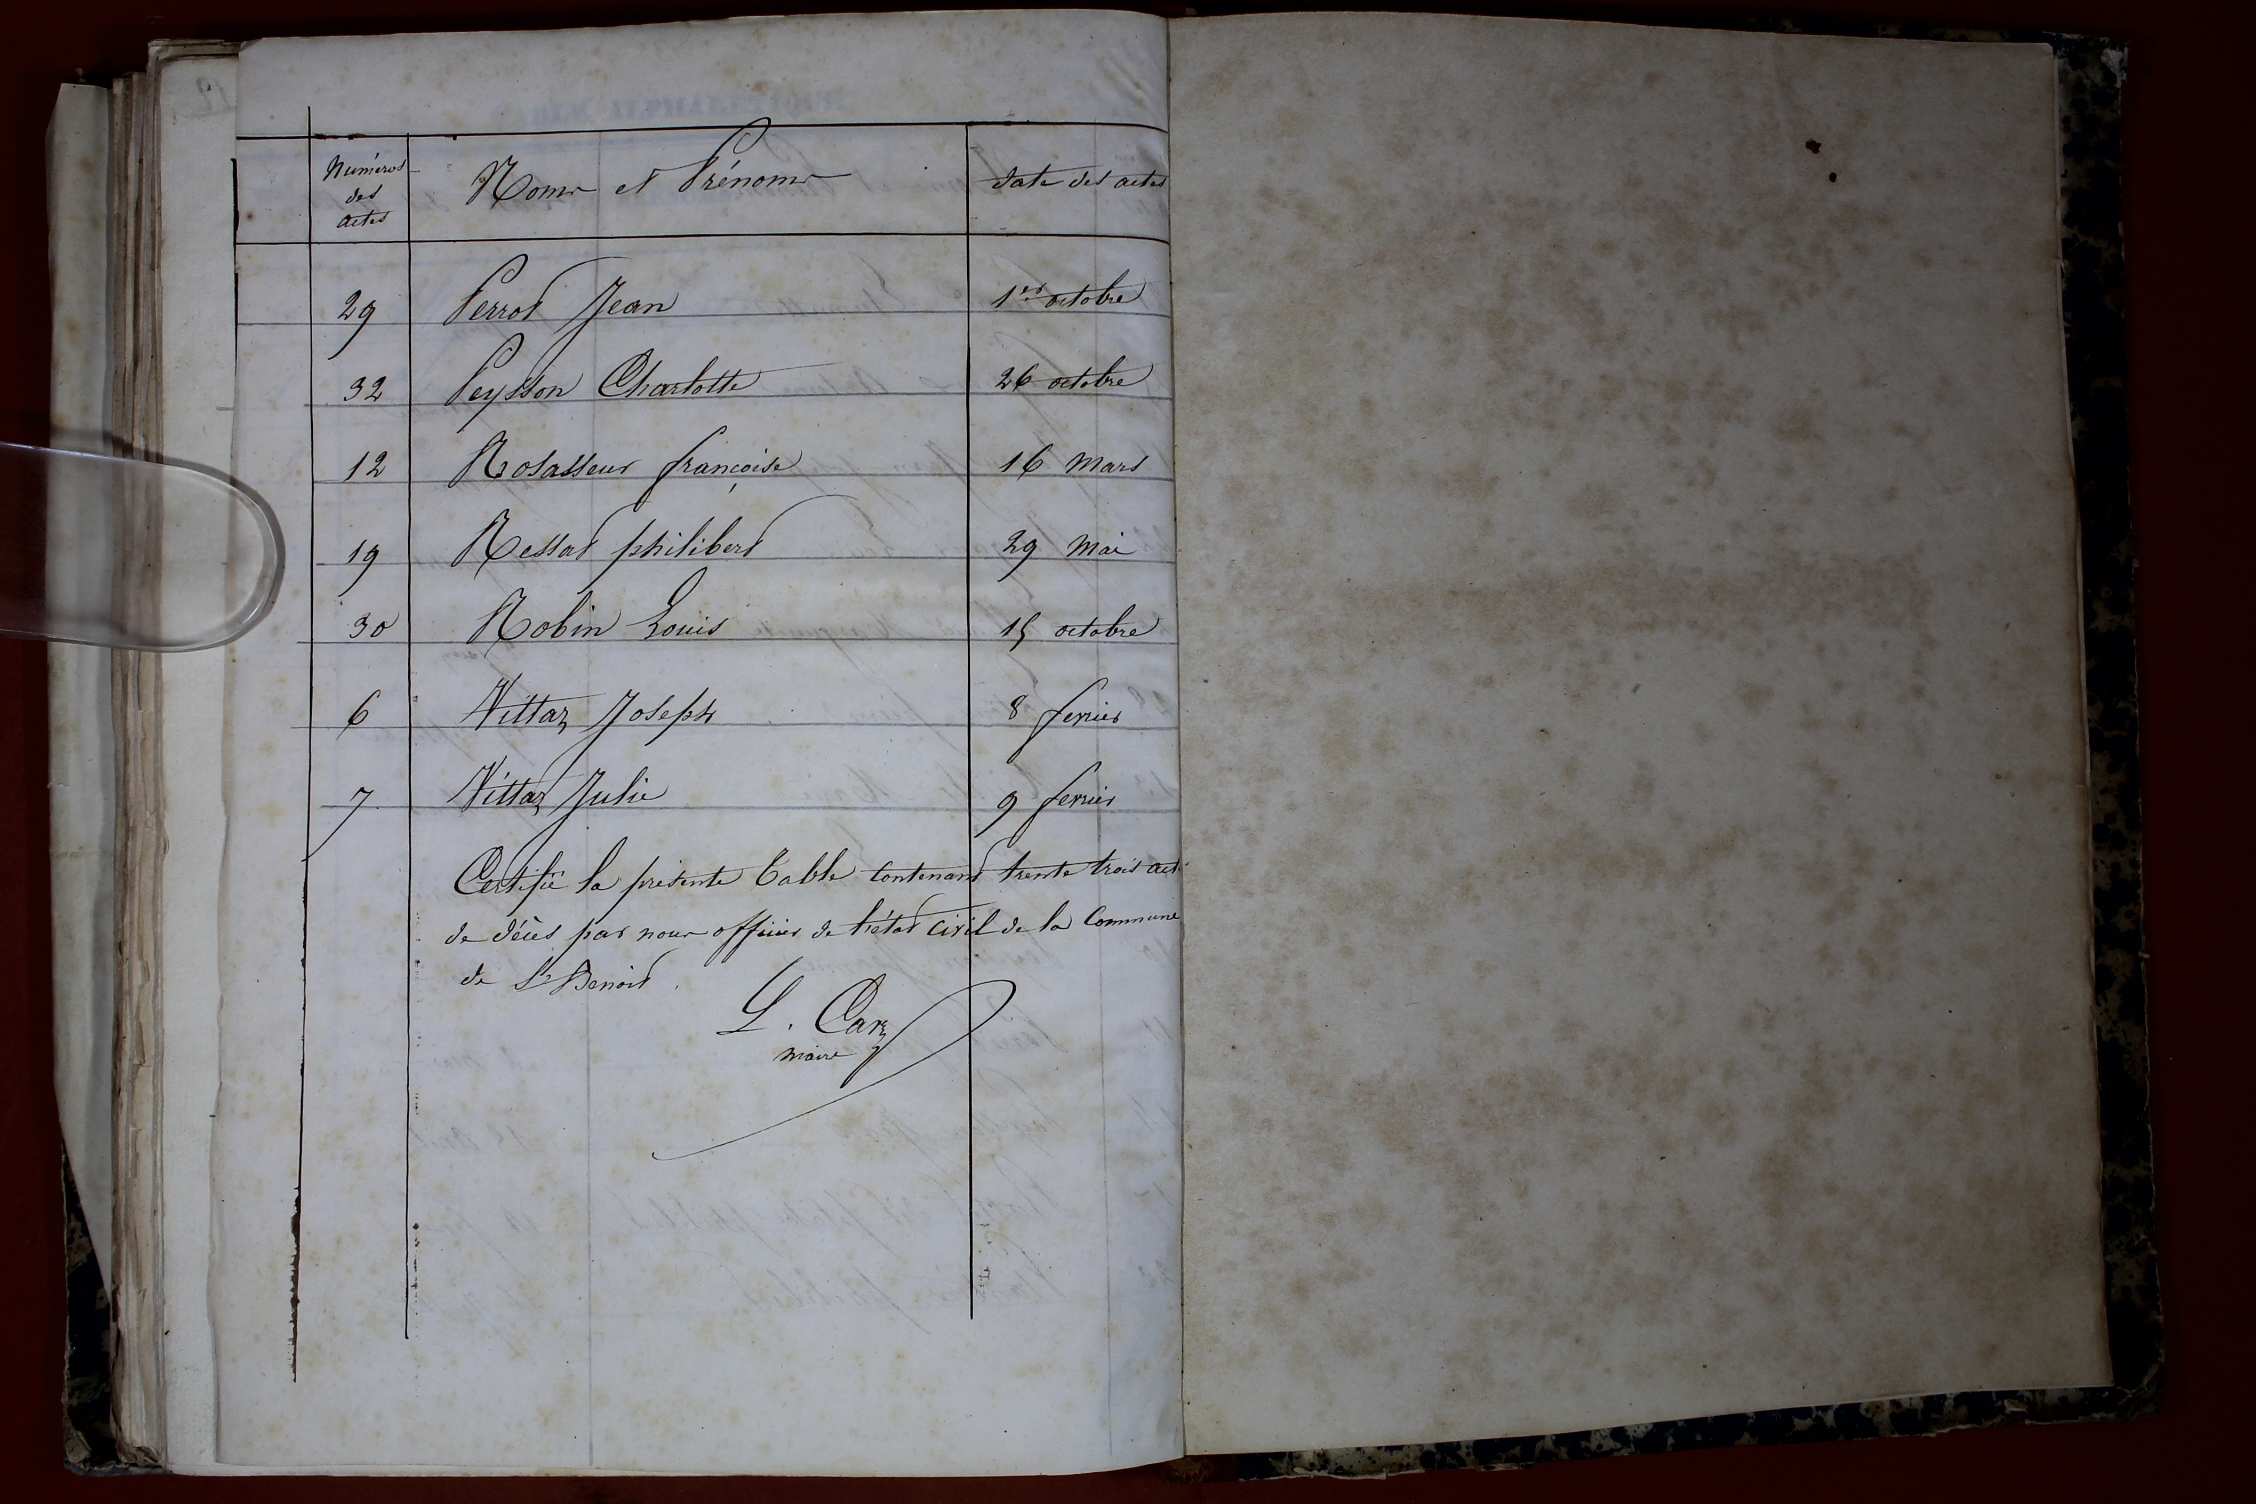 Numéros des actes Noms et Prénoms date des actes
29 Perrot Jean 1er octobre
32 Peysson Charlotte 26 octobre
12 Rosasseur françoise 16 Mars
19 Ressat philibert 29 Mai
30 Robin Louis 15 octobre
6 Vittaz Joseph 8 fevrier
7 Vittaz Julie 9 fevrier
Certifié la présente Table contenant trente trois act
de décès par nous officier de l'état civil de la Commune
de St Benoit.
L. Caz
maire